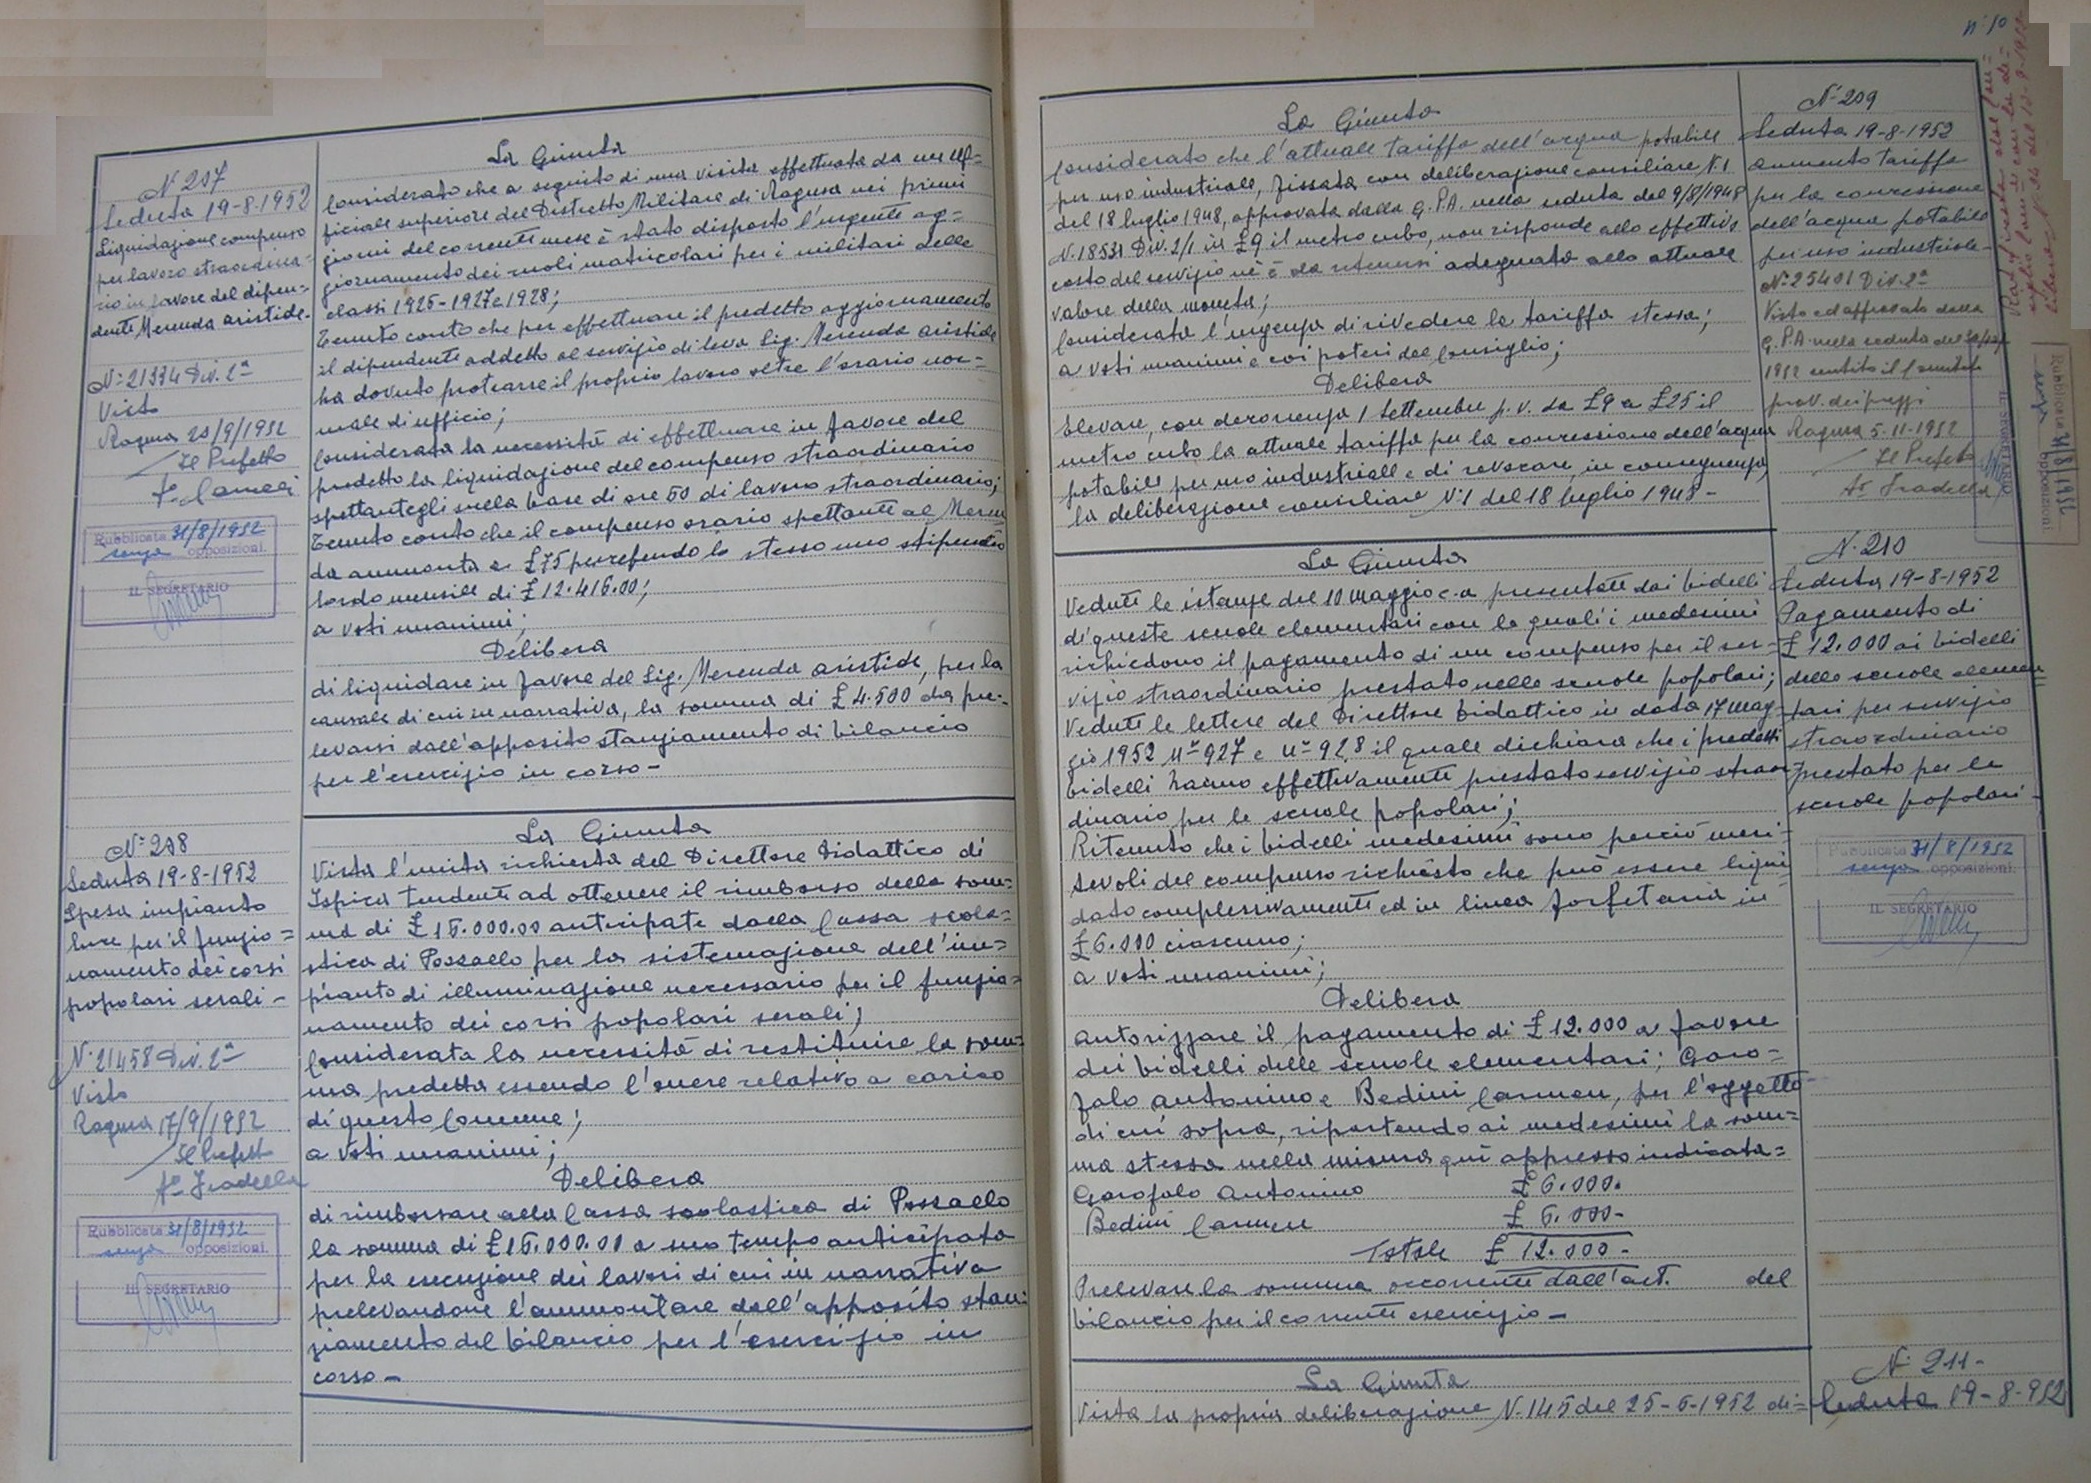 N 207
Seduta 19-8-1952
Liquidazione compenso
per lavoro straordina-
rio in favore del dipen-
dente Merenda Aristide.
N= 21334 Div. 2ª
Visto
Ragusa 20/9/1952
Il Prefetto
Pubblicata 31/8/1952
senza opposizioni.
IL SEGRETARIO
La Giunta
Considerato che a seguito di una visita effettuata da un uf=
ficiale superiore del Distretto Militare di Ragusa nei primi
giorni del corrente mese è stato disposto l'urgente ag=
giornamento dei ruoli matricolari per i militari delle
classi 1925-1927 e 1928;
Tenuto conto che per effettuare il predetto aggiornamento
il dipendente addetto al servizio di leva Sig. Merenda Aristide
ha dovuto protrarre il proprio lavoro oltre l'orario nor=
male di ufficio;
Considerata la necessità di effettuare in favore del
predetto la liquidazione del compenso straordinario
spettantegli sulla base di ore 60 di lavoro straordinario;
Tenuto conto che il compenso orario spettante al Meren
da ammonta a £75 percependo lo stesso uno stipendio
lordo mensile di £12.416.00;
a voti unanimi;
Delibera
di liquidare in favore del Sig. Merenda Aristide, per la
causale di cui in narrativa, la somma di £4.500 da pre-
levarsi dall'apposito stanziamento di bilancio
per l'esercizio in corso -
N= 208
Seduta 19-8-1952
Spesa impianto
luce per il funzio=
namento dei corsi
popolari serali -
N= 21458 Div. 2ª
Visto
Ragusa 17/9/1952
Il Prefetto
Fº Fradella
Pubblicata 31/8/1952
senza opposizioni.
IL SEGRETARIO
La Giunta
Vista l'unita richiesta del Direttore Didattico di
Ispica tendente ad ottenere il rimborso della som=
ma di £16.000.00 anticipate dalla Cassa scola=
stica di Pozzallo per la sistemazione dell'im=
pianto di illuminazione necessario per il funzio=
namento dei corsi popolari serali;
Considerata la necessità di restituire la som=
ma predetta essendo l'onere relativo a carico
di questo Comune;
a voti unanimi;
Delibera
di rimborsare alla Cassa scolastica di Pozzallo
la somma di £16.000.00 a suo tempo anticipata
per la esecuzione dei lavori di cui in narrativa
prelevandone l'ammontare dall'apposito stan=
ziamento del bilancio per l'esercizio in
corso -
nº 10
La Giunta
Considerato che l'attuale tariffa dell'acqua potabile
per uso industriale, fissata con deliberazione consiliare N.1
del 18 luglio 1948, approvata dalla G.P.A. nella seduta del 9/8/1948
N. 18531 Div. 2/1 in £9 il metro cubo, non risponde allo effettivo
costo del servizio nè è da ritenersi adeguata allo attuale
valore della moneta;
Considerata l'urgenza di rivedere la tariffa stessa;
a voti unanimi e coi poteri del Consiglio;
Delibera
Elevare, con decorrenza 1 Settembre p.v. da £9 a £25 il
metro cubo la attuale tariffa per la concessione dell'acqua
potabile per uso industriale e di revocare, in conseguenza,
la deliberazione consiliare N.1 del 18 luglio 1948-
N= 209
Seduta 19-8-1952
Aumento tariffa
per la concessione
dell'acqua potabile
per uso industriale-
N= 25401 Div. 2ª
Visto ed approvato dalla
G.P.A. nella seduta del
1952 sentito il Comitato
prov. dei prezzi
Ragusa 5-11-1952
Il Prefetto
Fº Fradella
Pubblicata 31/8/1952
senza opposizioni.
IL SEGRETARIO
La Giunta
Vedute le istanze del 10 maggio c.a. presentate dai bidelli
di queste scuole elementari con le quali i medesimi
richiedono il pagamento di un compenso per il ser-
vizio straordinario prestato nelle scuole popolari;
Vedute le lettere del Direttore Didattico in data 17 mag-
gio 1952 nº 927 e nº 928 il quale dichiara che i predetti
bidelli hanno effettivamente prestato servizio straor-
dinario per le scuole popolari;
Ritenuto che i bidelli medesimi sono perciò meri-
tevoli del compenso richiesto che può essere liqui
dato complessivamente ed in linea forfetaria in
£6.000 ciascuno;
a voti unanimi;
Delibera
Autorizzare il pagamento di £12.000 a favore
dei bidelli delle scuole elementari; Garo=
falo Antonino e Bedini Carmen, per l'oggetto
di cui sopra, ripartendo ai medesimi la som=
ma stessa nella misura quì appresso indicata=
Garofalo Antonino £6.000.
Bedini Carmen £6.000-
Totale £12.000-
Prelevare la somma occorrente dall'art. del
bilancio per il corrente esercizio -
N. 210
Seduta 19-8-1952
Pagamento di
£12.000 ai bidelli
delle scuole elemen
tari per servizio
straordinario
prestato per le
scuole popolari -
Pubblicata 31/8/1952
senza opposizioni.
IL SEGRETARIO
La Giunta
Vista la propria deliberazione N. 145 del 25-6-1952 di=
N. 211-
Seduta 19-8-952